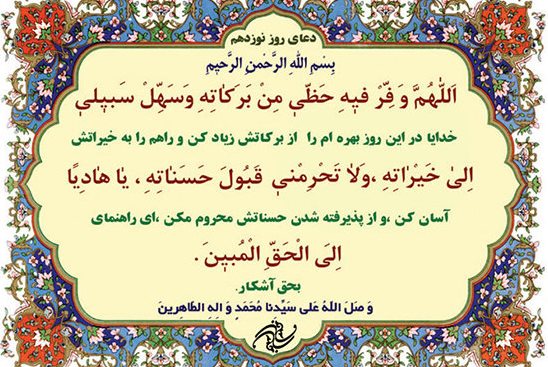 دعای روز نوزدهم
بِسْمِ اللهِ الرَّحْمنِ الرَّحیمِ
اَللّٰهُمَّ وَفِّرْ فیهِ حَظّی مِنْ بَرَکاتِهِ وَسَهِّلْ سَبیلی
خدایا در این روز بهره ام را از برکاتش زیاد کن و راهم را به خیراتش
اِلیٰ خَیْرٰاتِهِ ،وَلاٰ تَحْرِمْنی قَبُولَ حَسَنٰاتِهِ ، یٰا هٰادِیًا
آسان کن ،و از پذیرفته شدن حسناتش محروم مکن ،ای راهنمای
اِلَی الْحَقِّ الْمُبینَ .
بحق آشکار.
وَ صَلَ اللهُ عَلی سَیِّدِنا مُحَمَدٍ وَ الِهِ الطّاهِرینَ